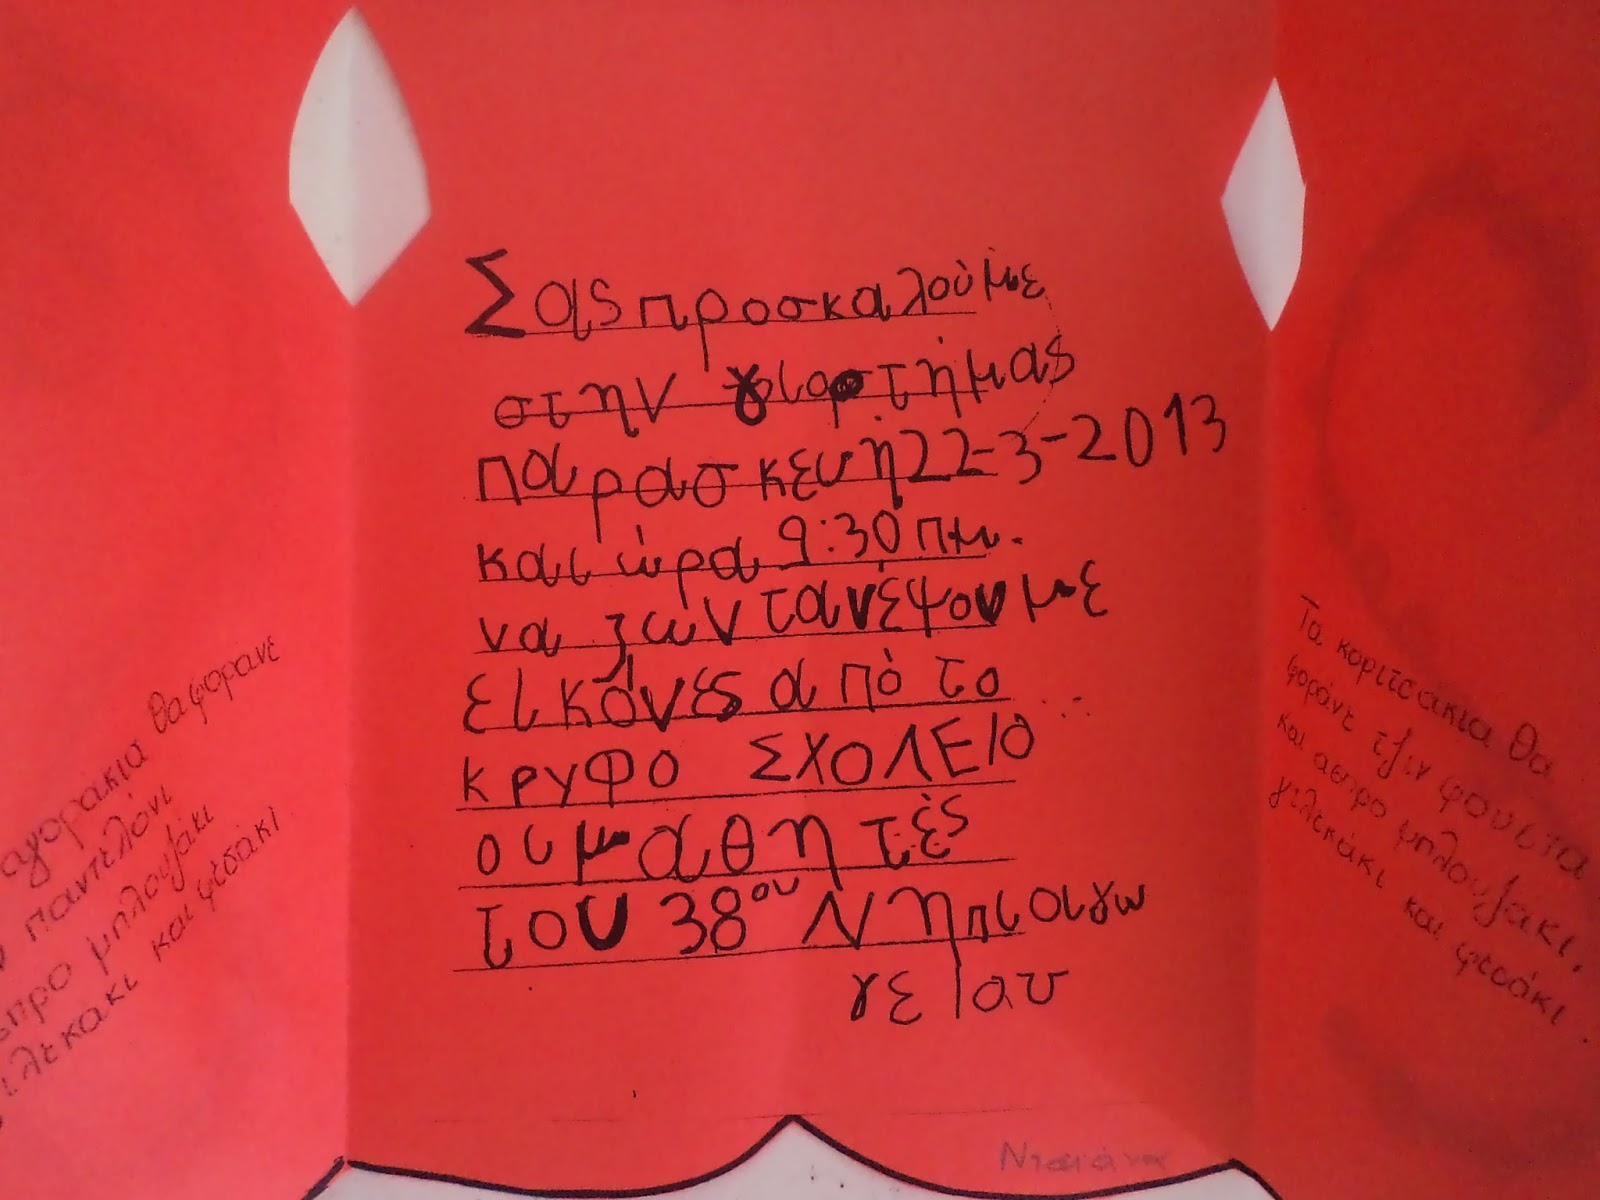 Σας προσκαλούμε
στην γιορτή μας
παρασκευή 22-3-2013
και ώρα 9:30 πμ.
να ζωντανέψουμε
εικόνες από το
κρυφο ΣΧΟΛΕΙΟ
οι μαθητές
του 38ου Νηπιαγω
γείου
αγοράκια θα φορανε
παντελόνι
μπλουζάκι
και φεσάκι
Τα κοριτσάκια θα
φοράνε τζιν φούστα
και ασπρο μπλουζάκι,
γιλεκάκι και φεσάκι
Νταιάνα